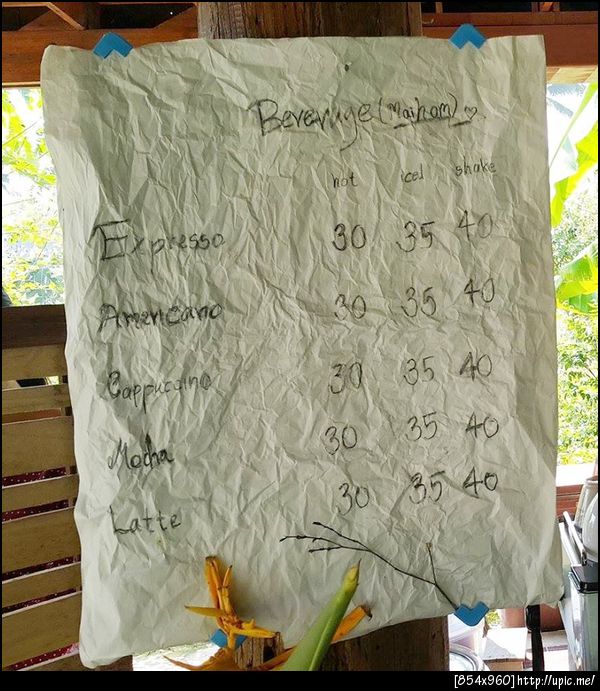 Beverage (Maihom)
hot iced shake
Expresso 30 35 40
Americano 30 35 40
Cappuccino 30 35 40
Mocha 30 35 40
Latte 30 35 40
[854x960]http://upic.me/